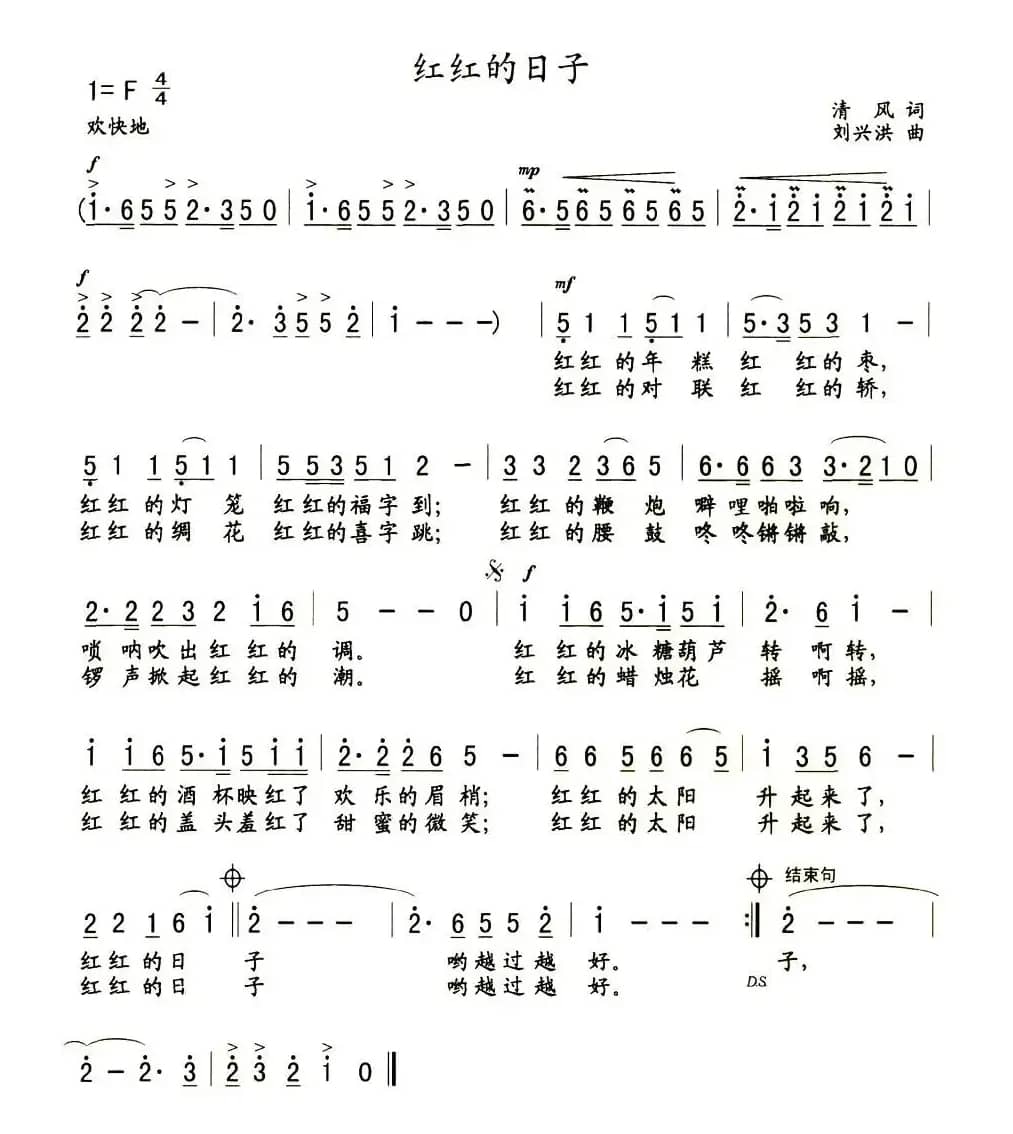 红红的日子
1=F 4/4
清 风 词
欢快地
刘兴洪 曲
f
mp
(i·6 5 5 2·3 5 0 | i·6 5 5 2·3 5 0 | 6·5 6 5 6 5 6 5 | 2·i 2 i 2 i 2 i |
f
mf
2 2 2 2 - | 2· 3 5 5 2 | i - - -) | 5 1 1 5 1 1 | 5·3 5 3 1 - |
红红 的年 糕 红 红的 枣,
红红 的对 联 红 红的 轿,
5 1 1 5 1 1 | 5 5 3 5 1 2 - | 3 3 2 3 6 5 | 6·6 6 3 3·2 1 0 |
红红 的灯 笼 红红的福字到; 红红 的鞭 炮 噼哩啪啦响,
红红 的绸 花 红红的喜字跳; 红红 的腰 鼓 咚咚锵锵敲,
f
2·2 2 3 2 i 6 | 5 - - 0 | i i 6 5·i 5 i | 2· 6 i - |
唢 呐吹出红 红的 调。 红 红的冰糖葫芦 转 啊转,
锣 声掀起红 红的 潮。 红 红的蜡 烛花 摇 啊摇,
i i 6 5·i 5 i i | 2·2 2 6 5 - | 6 6 5 6 6 5 | i 3 5 6 - |
红 红的酒 杯映红了 欢 乐的眉 梢; 红红 的太阳 升 起来了,
红 红的盖 头羞红了 甜 蜜的微 笑; 红红 的太阳 升 起来了,
结束句
2 2 1 6 i || 2 - - - | 2· 6 5 5 2 | i - - - :| 2 - - - |
红红 的日 子 哟越过越 好。 子,
红红 的日 子 哟越过越 好。 D.S.
2 - 2· 3 | 2 3 2 i 0 ||